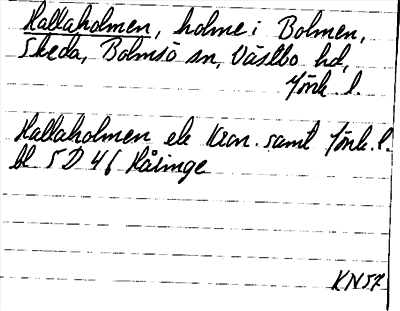 Hallaholmen, holme i Bolmen,
Skeda, Bolmsö sn, Västbo hd,
Jönk. l.
Hallaholmen ek Kron. samt Jönk. l.
bl 5D 4f Håringe
KN57